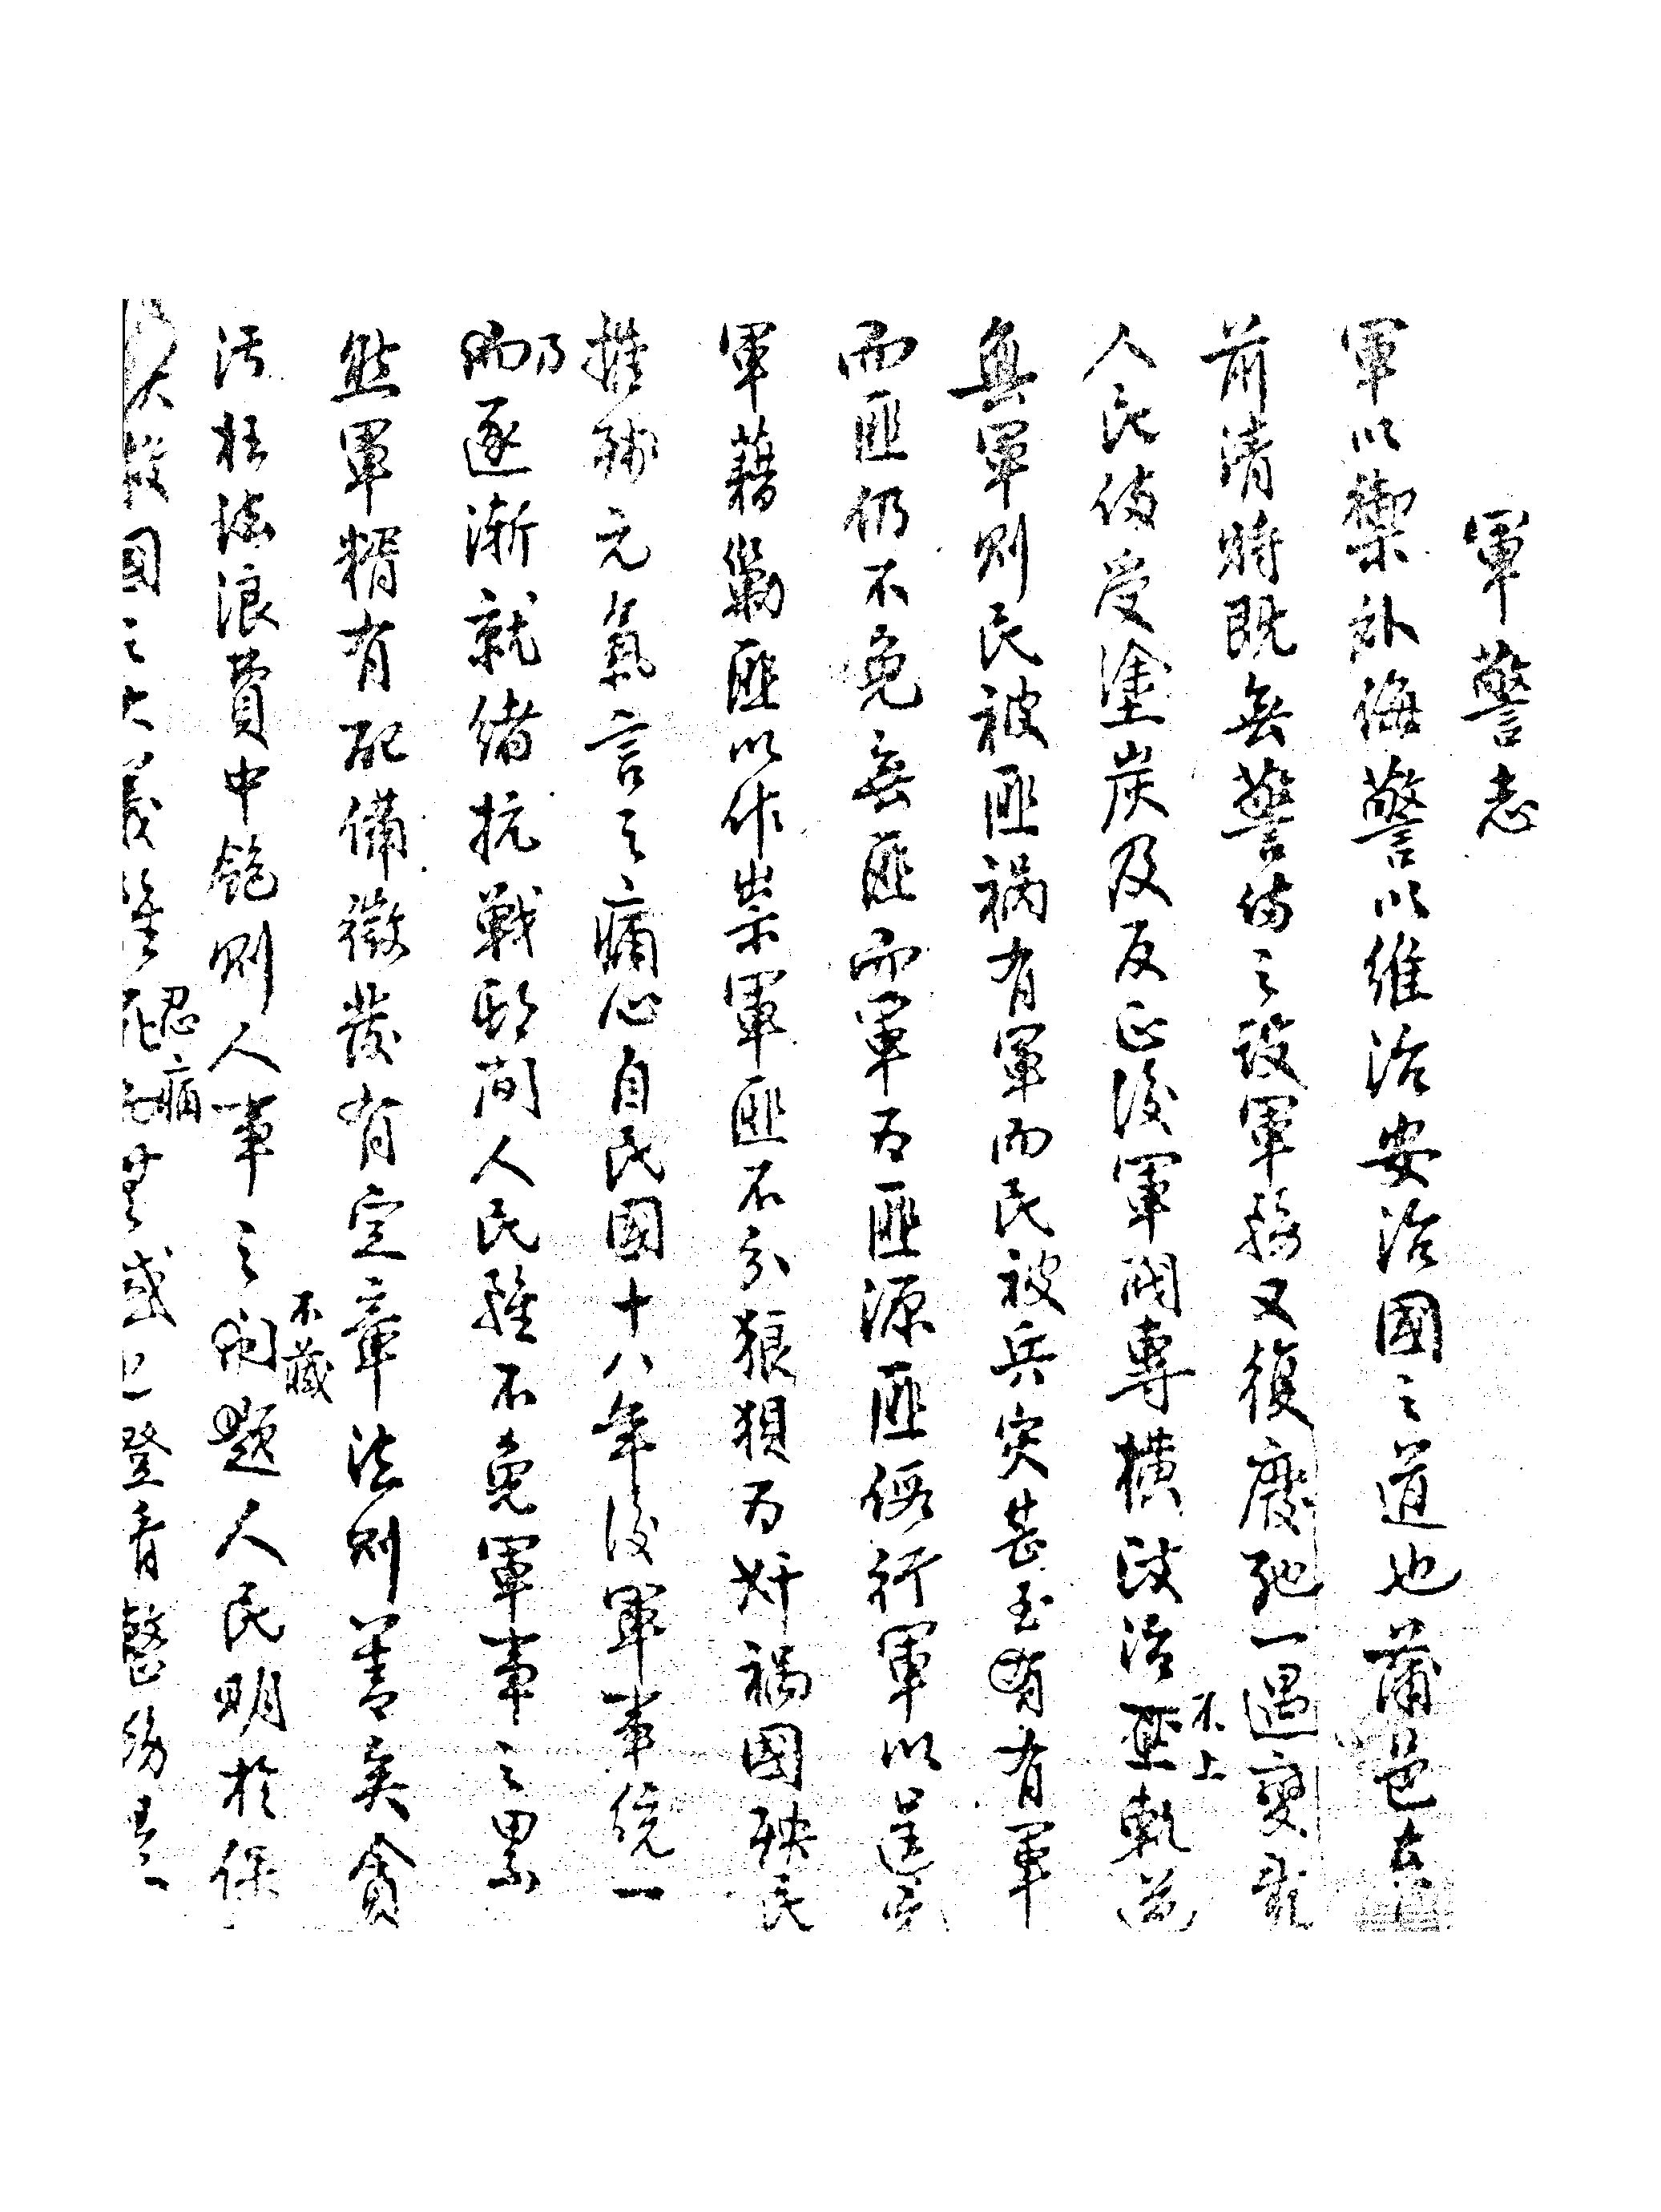 軍警志
軍以禦外侮警以維治安治國之道也蒲邑在
前清時既無警備之設軍務又復廢弛一遇變亂
人民備受塗炭及反正後軍閥專橫政治不上軌道
無軍則民被匪禍有軍而民被兵災甚至有有軍
而匪仍不免無匪而軍為匪源匪假行軍以逞兇
軍藉勦匪以作祟軍匪不分狼狽為奸禍國殃民
摧殘元氣言之痛心自民國十八年後軍事統一
乃逐漸就緒抗戰期間人民雖不免軍事之累
然軍糈有配備徵發有定章法則善矣貪
污枉法浪費中飽則人事之不臧問題人民明於保
大敵國之大義 忍痛 登看警務